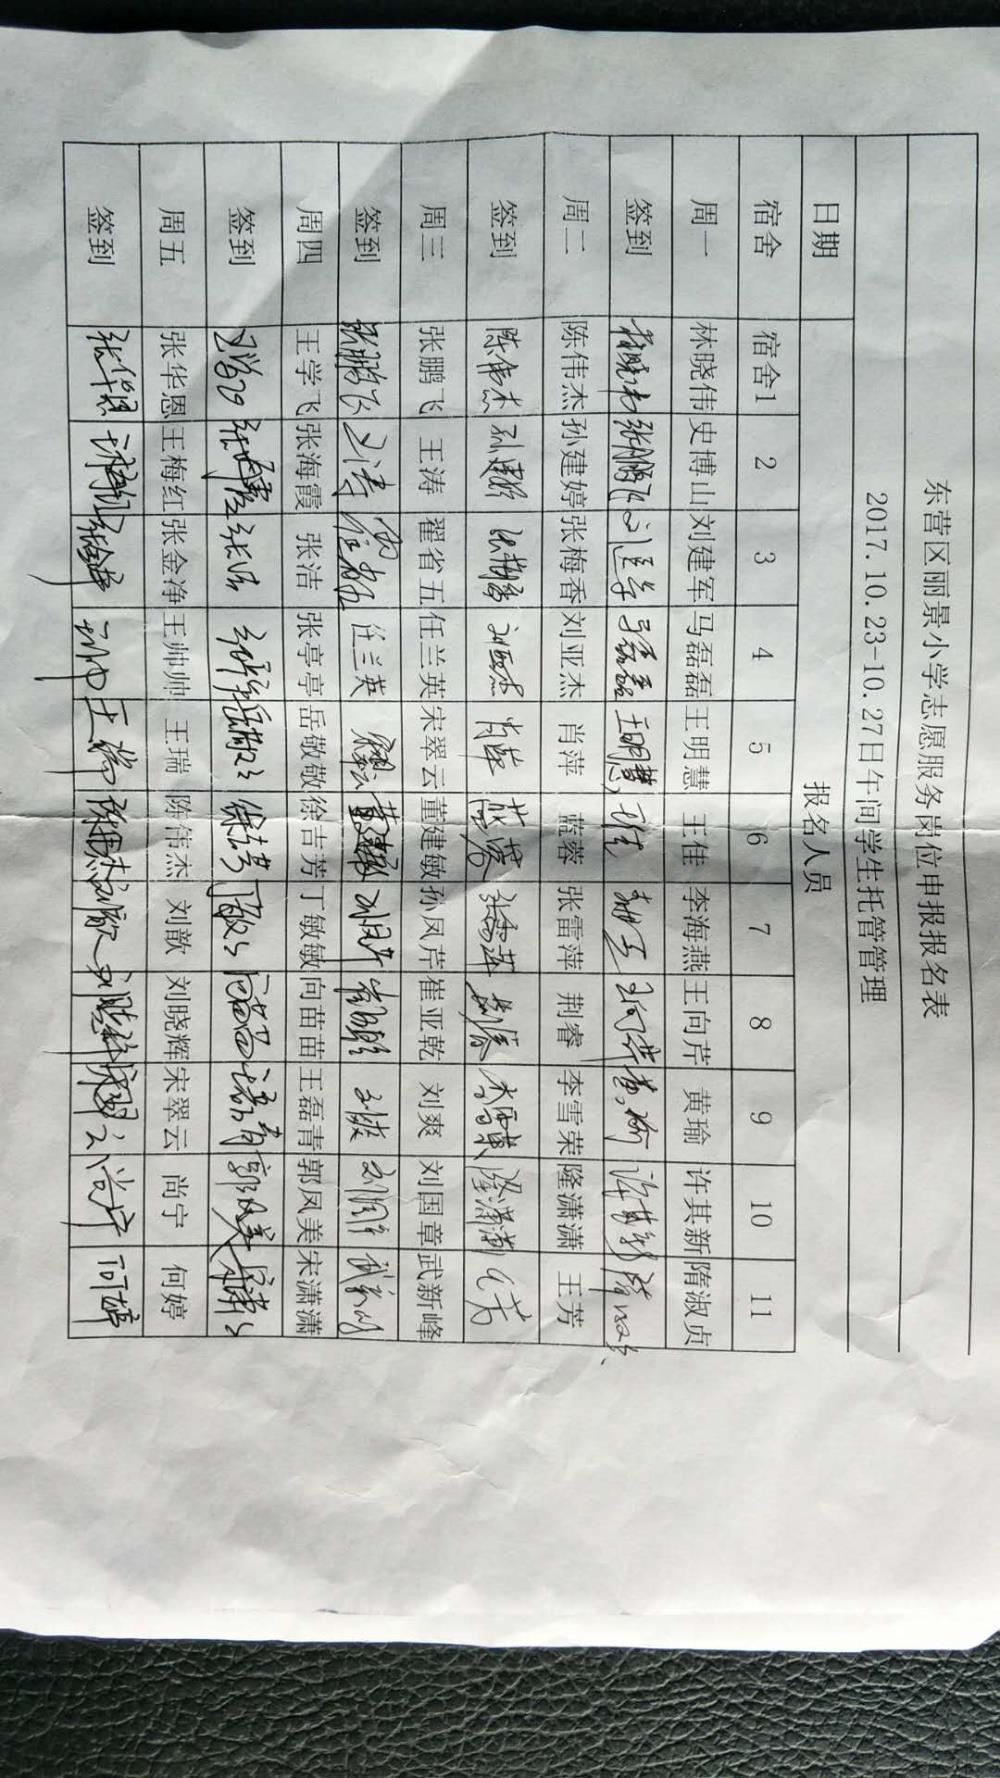 东营区丽景小学志愿服务岗位申报报名表
2017.10.23-10.27日午间学生托管管理
日期 报名人员
宿舍 宿舍1 2 3 4 5 6 7 8 9 10 11
周一 林晓伟 史博山 刘建军 马磊磊 王明慧 王佳 李海燕 王向芹 黄瑜 许其新 隋淑贞
签到 张鹏飞 马磊磊 王明慧 王佳 王向芹 黄瑜 许其新
周二 陈伟杰 孙建婷 张梅香 刘亚杰 肖萍 蓝蓉 张雷萍 荆睿 李雪荣 隆潇潇 王芳
签到 陈伟杰 孙建婷 张梅香 刘亚杰 肖萍 蓝蓉 张雷萍 荆睿 李雪荣 隆潇潇 王芳
周三 张鹏飞 王涛 翟省五 任兰英 宋翠云 董建敏 孙凤芹 崔亚乾 刘爽 刘国章 武新峰
签到 张鹏飞 王涛 任兰英 宋翠云 董建敏 孙凤芹 崔亚乾 刘国章
周四 王学飞 张海霞 张洁 张亭亭 岳敬敬 徐吉芳 丁敏敏 向苗苗 王磊青 郭凤美 宋潇潇
签到 张海霞 张洁 岳敬敬 丁敏敏 向苗苗 郭凤美
周五 张华恩 王梅红 张金净 王帅帅 王瑞 陈伟杰 刘歆 刘晓辉 宋翠云 尚宁 何婷
签到 张华恩 张金净 王瑞 陈伟杰 刘歆 刘晓辉 宋翠云 尚宁 何婷